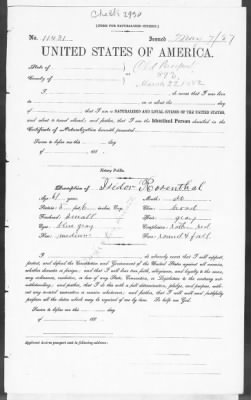 [FORM FOR NATURALIZED CITIZEN.]
No. 11431 Issued May 7/87
UNITED STATES OF AMERICA.
State of
County of
March 22 1882
do swear that I was born
in on or about the day
of that I am a NATURALIZED AND LOYAL CITIZEN OF THE UNITED STATES,
and about to travel abroad; and further, that I am the Identical Person described in the
Certificate of Naturalization herewith presented.
Sworn to before me this day
of 188
Notary Public.
Description of Isidor Rosenthal
Age: years Mouth:
Stature: feet inches Chin: broad
Forehead: small Hair: gray
Eyes: blue gray Complexion:
Nose: medium Face: round & full
I, do solemnly swear that I will support,
protect, and defend the Constitution and Government of the United States against all enemies,
whether domestic or foreign; and that I will bear true faith, allegiance, and loyalty to the same,
any ordinance, resolution, or law of any State, Convention, or Legislature to the contrary not-
withstanding; and further, that I do this with a full determination, pledge, and purpose, with-
out any mental reservation or evasion whatsoever; and further, that I will well and faithfully
perform all the duties which may be required of me by law. So help me God.
Sworn to before me this day
of 188
Applicant desires passport sent to following address: